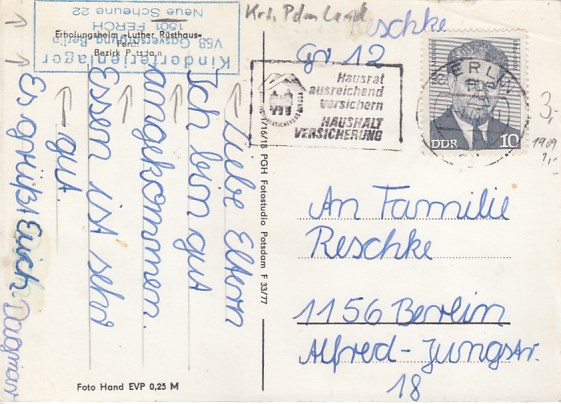 Kinderferienlager
V58 Gasversorgung Berlin
1501 FERCH
Neue Scheune 22
Erholungsheim »Luther Rüsthaus«
Ferch
Bezirk Potsdam
Liebe Eltern
Ich bin gut
angekommen.
Essen ist sehr
gut.
Es grüßt Euch Dagmar
Foto Hand EVP 0,25 M
16/18 PGH Fotostudio Potsdam F 33/77
Krs. Pdm Land
Reschke
Gr. 12
Hausrat
ausreichend
versichern
HAUSHALT
VERSICHERUNG
BERLIN
DDR
10
3,-
1909
1,-
An Familie
Reschke
1156 Berlin
Alfred-Jungstr.
18